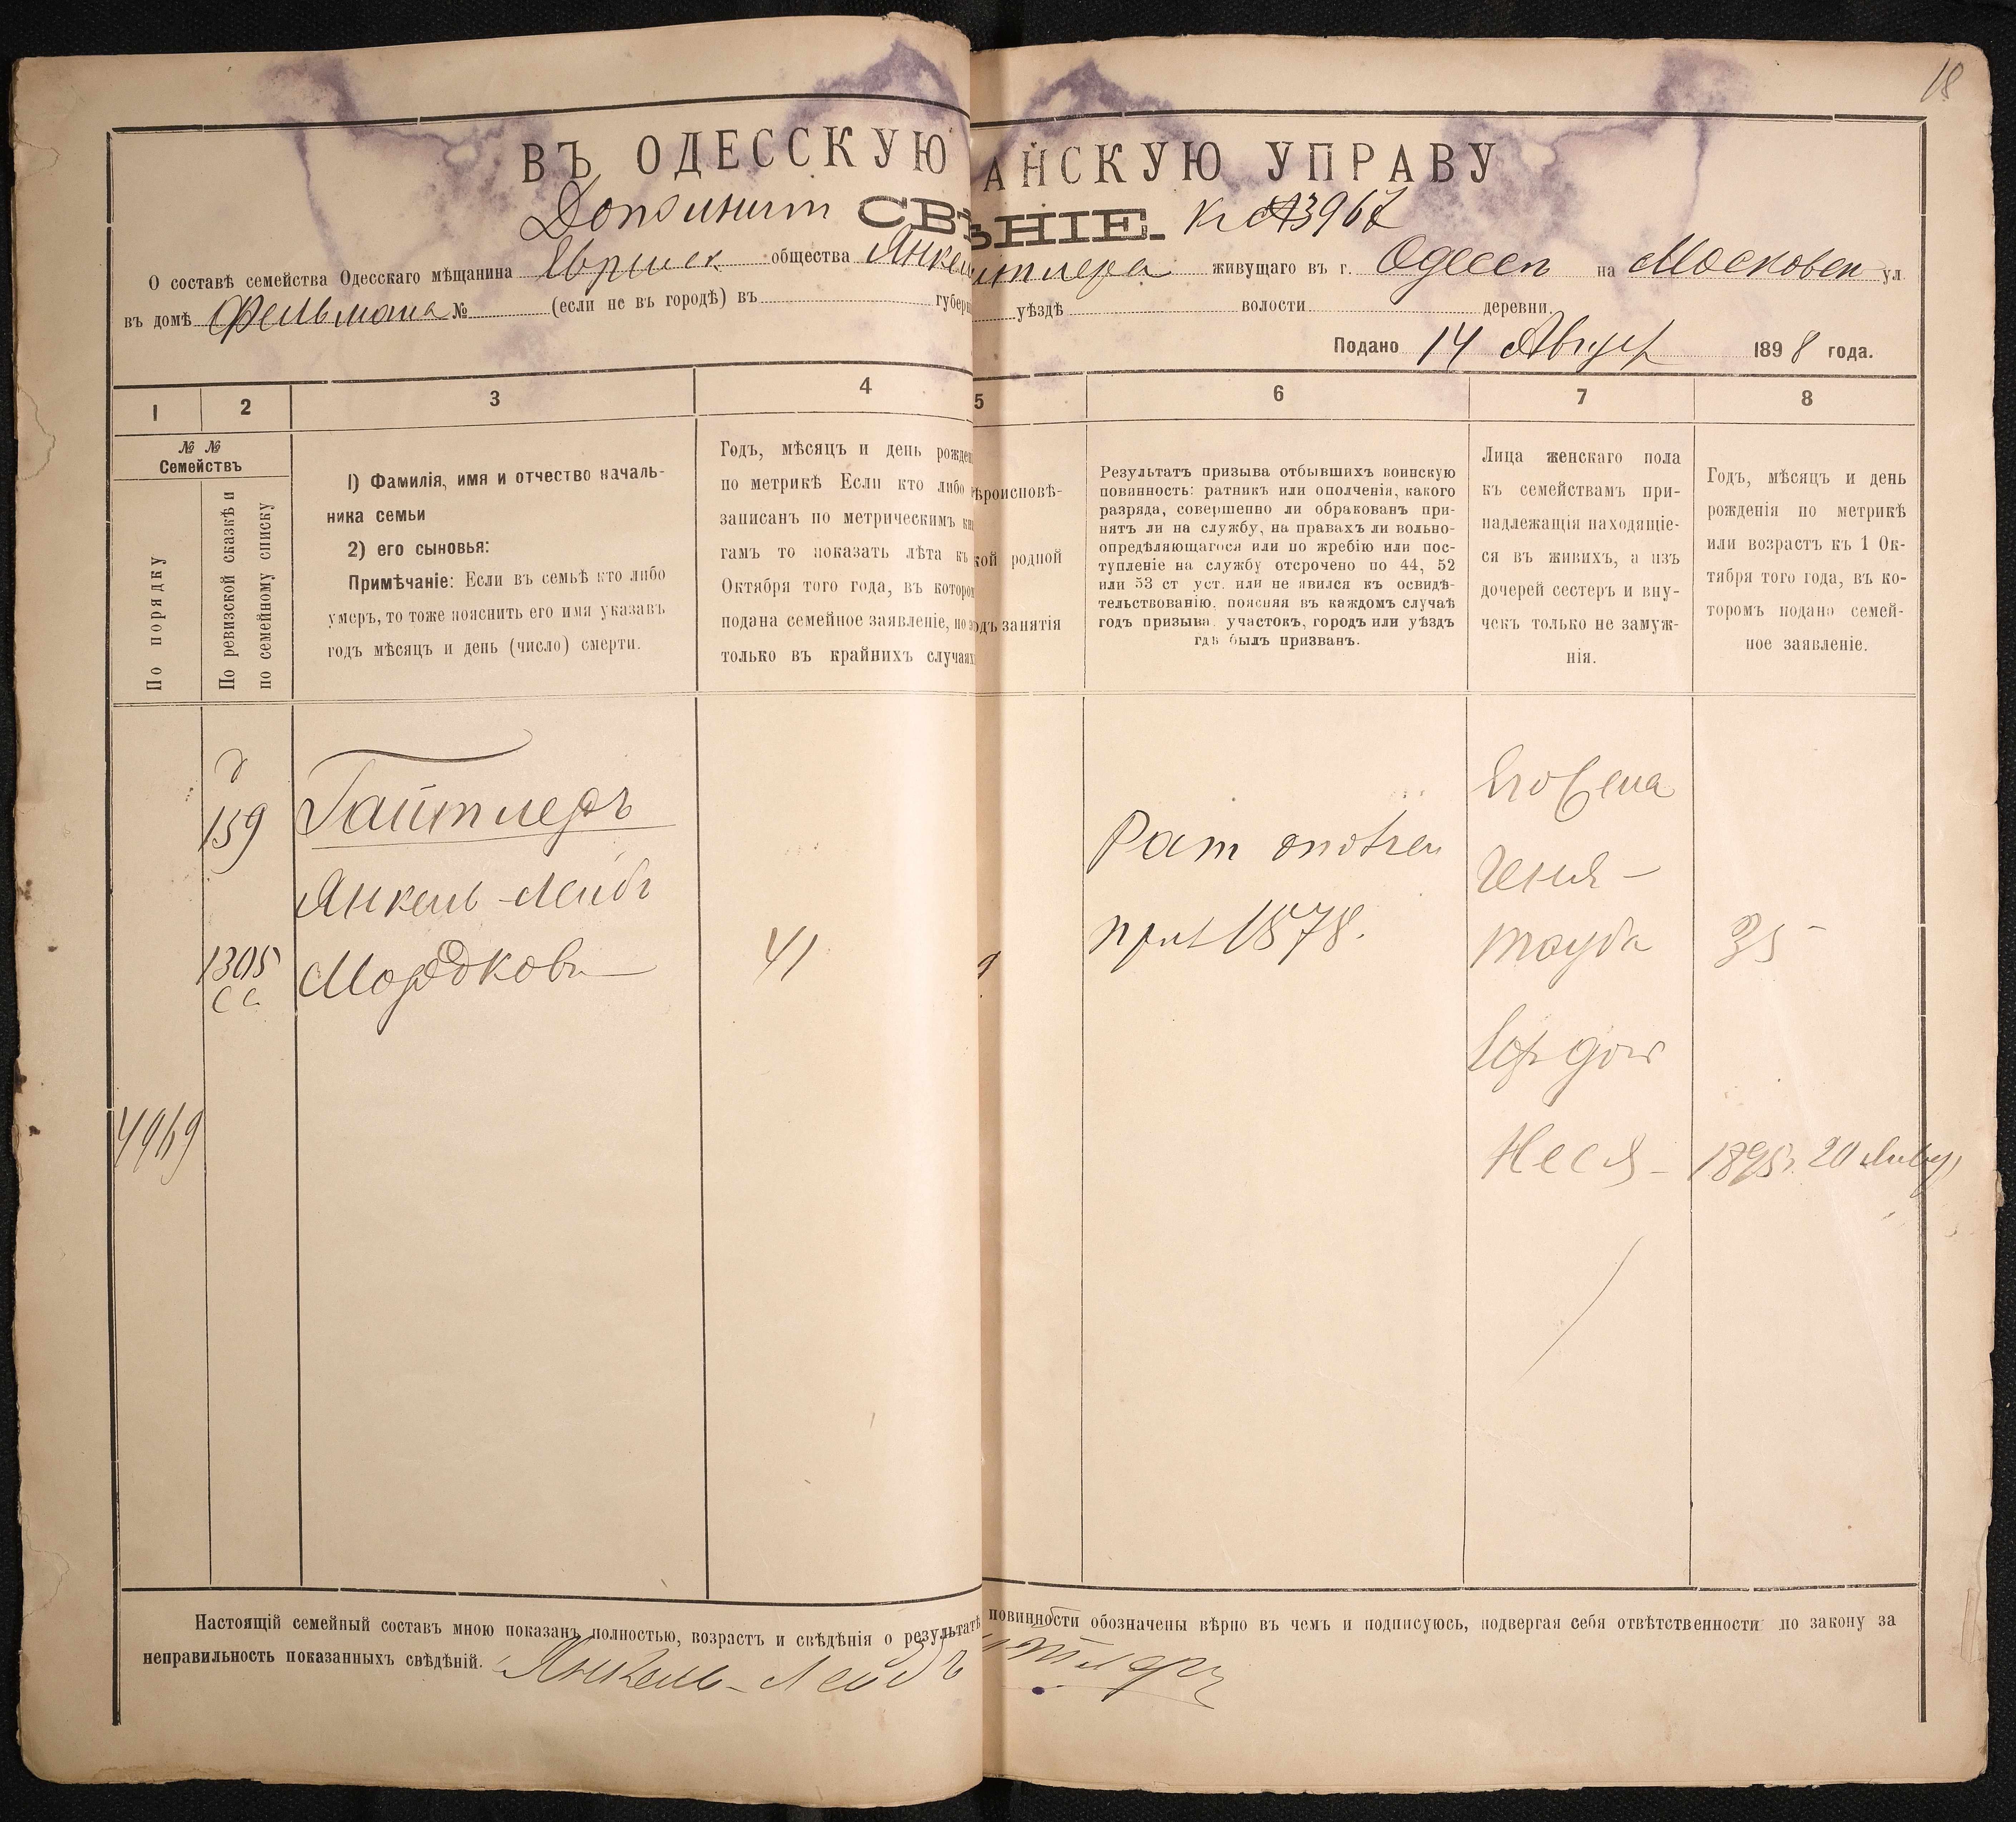 18
ВЪ ОДЕССКУЮ АНСКУЮ УПРАВУ
СВѢ ѢНІЕ. К №3967
О составѣ семейства Одесскаго мѣщанина Еврейск общества Янкел йтлера живущаго въ г. Одессѣ на Московск ул
въ домѣ Фельмана № (если не въ городѣ) въ губерн уѣздѣ волости деревни
Подано 14 Август 1898 года.
1 2 3 4 5 6 7 8
№ №
Семействъ
По порядку
По ревизской сказкѣ и
по семейному списку
1) Фамилія, имя и отчество началь-
ника семьи
2) его сыновья:
Примѣчаніе: Если въ семьѣ кто либо
умеръ, то тоже пояснить его имя указавъ
годъ мѣсяцъ и день (число) смерти.
Годъ, мѣсяцъ и день рожден
по метрикѣ Если кто либо
записанъ по метрическимъ кни
гамъ то показать лѣта къ
Октября того года, въ которо
подана семейное заявленіе, но
только въ крайнихъ случаях
ѣроисповѣ-
кой родной
одъ занятія
Результатъ призыва отбывшихъ воинскую
повинность: ратникъ или ополченія, какого
разряда, совершенно ли обракованъ при-
нятъ ли на службу, на правахъ ли вольно-
опредѣляющагося или по жребію или пос-
тупленіе на службу отсрочено по 44, 52
или 53 ст уст. или не явился къ освидѣ-
тельствованію, поясняя въ каждомъ случаѣ
годъ призыва, участокъ, городъ или уѣздъ
гдѣ былъ призванъ.
Лица женскаго пола
къ семействамъ при-
надлежащія находящіе-
ся въ живихъ, а изъ
дочерей сестеръ и вну-
чекъ только не замуж-
нія.
Годъ, мѣсяцъ и день
рожденія по метрикѣ
или возрастъ къ 1 Ок-
тября того года, въ ко-
торомъ подано семей-
ное заявленіе.
159
Гайтлеръ
Янкель-Лейбъ
1305
с с.
Мордкови
41
Рат ополчен
приз 1878.
Его жена
Геня-
Тауба
35
Его доч
4969
Неся - 1895г. 20 Январ
Настоящій семейный составъ мною показанъ полностью, возрастъ и свѣдѣнія о результатѣ повинности обозначены вѣрно въ чемъ и подписуюсь, подвергая себя отвѣтственности по закону за
неправильность показанныхъ свѣдѣній. Янкель-Лейбъ йтлеръ